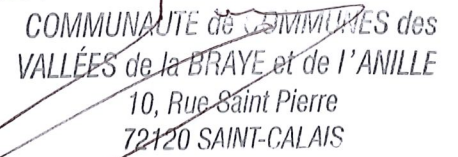 COMMUNAUTE de COMMUNES des
VALLÉES de la BRAYE et de l'ANILLE
10, Rue Saint Pierre
72120 SAINT-CALAIS